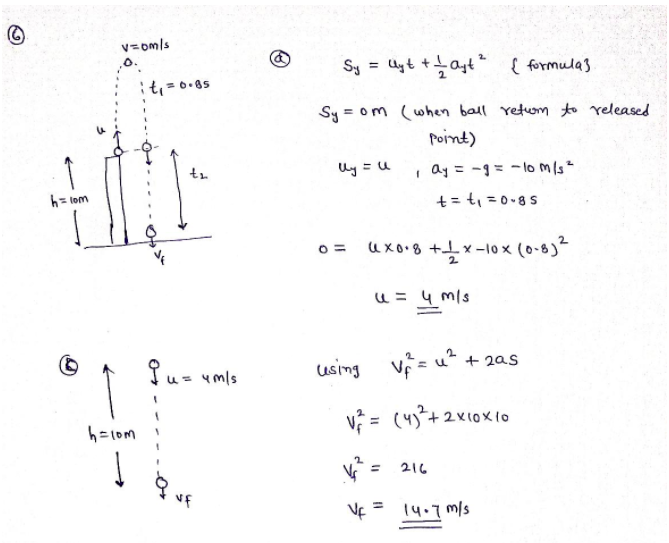 ⑥
v=0m/s
t₁ = 0.8s
u
h=10m
t₂
Vf
ⓐ Sy = uyt + 1/2 ayt² { formula}
Sy = 0 m ( when ball return to released
point)
uy = u , ay = -g = -10 m/s²
t = t₁ = 0.8 s
0 = u x 0.8 + 1/2 x -10 x (0.8)²
u = 4 m/s
ⓑ
u = 4m/s
h=10m
Vf
using Vf² = u² + 2as
Vf² = (4)² + 2x10x10
Vf² = 216
Vf = 14.7 m/s